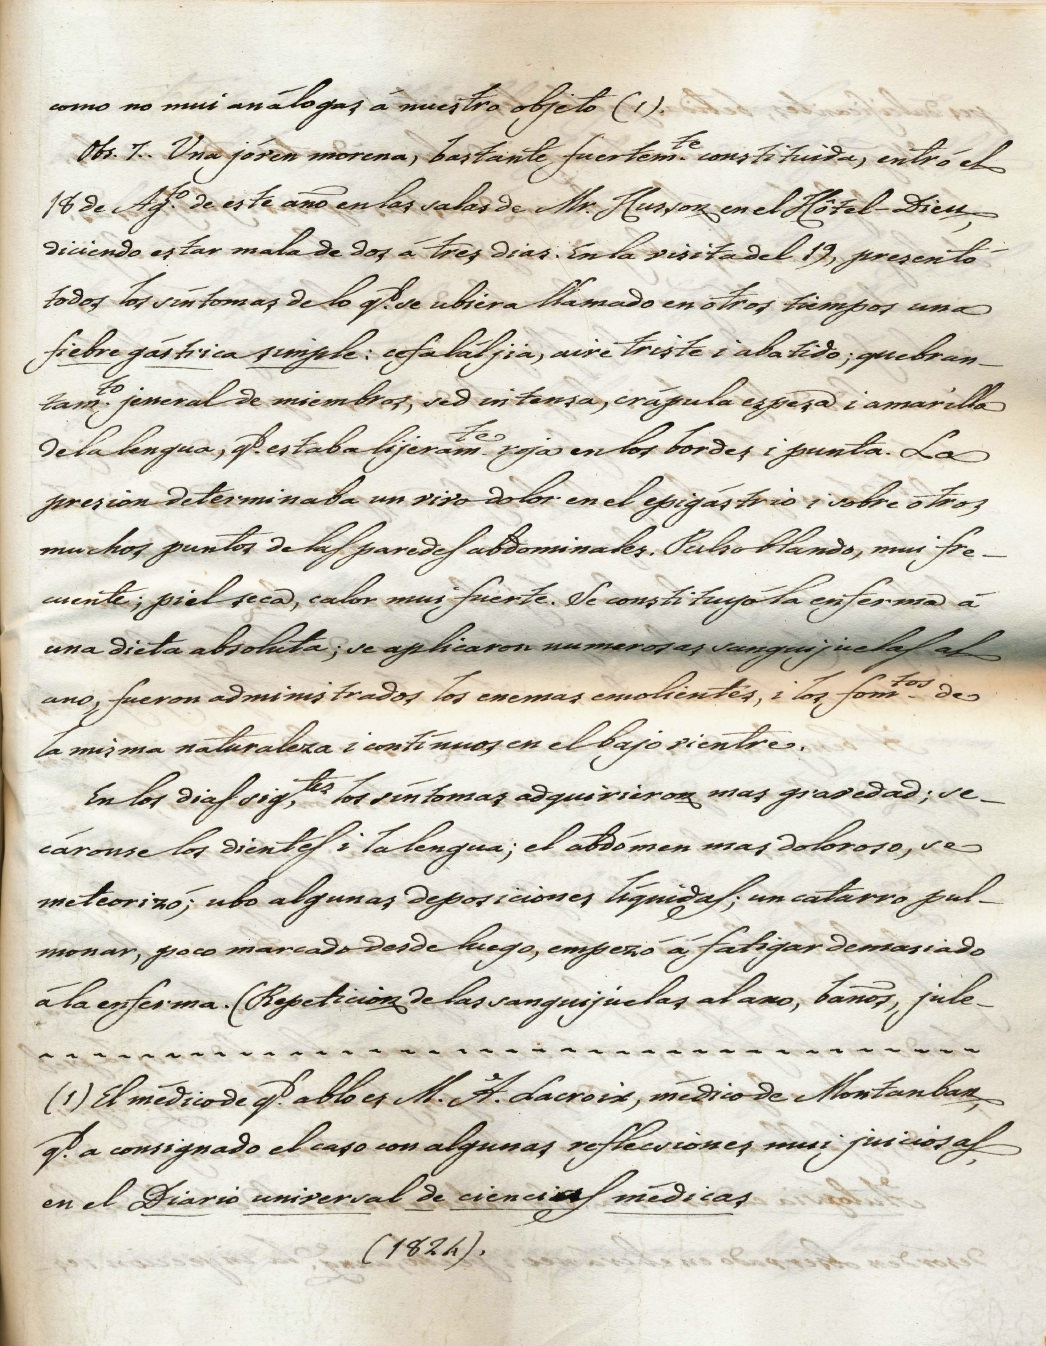 como no mui análogas á nuestro objeto (1).
Obs. 7.. Una jóven morena, bastante fuertem.te constituida, entró el
18 de Ag.to de este año en las salas de Mr. Husson en el Hôtel-Dieu,
diciendo estar mala de dos á tres dias. En la visita del 19, presentó
todos los síntomas de lo q.e se ubiera llamado en otros tiempos una
fiebre gástrica simple: cefalaljia, aire triste i abatido; quebran-
tam.to jeneral de miembros, sed intensa, crápula espesa i amarilla
de la lengua, q.e estaba lijeram.te roja en los bordes i punta. La
presion determinaba un vivo dolor en el epigástrio i sobre otros
muchos puntos de las paredes abdominales. Pulso blando, mui fre-
cuente; piel seca, calor mui fuerte. Se constituyó la enferma á
una dieta absoluta; se aplicaron numerosas sanguijuelas al
ano, fueron administrados los enemas emolientes, i los fom.tos de
la misma naturaleza i contínuos en el bajo vientre.
En los dias sig.tes los síntomas adquirieron mas gravedad; se-
cáronse los dientes i la lengua; el abdómen mas doloroso, se
meteorizó; ubo algunas deposiciones líquidas; un catarro pul-
monar, poco marcado desde luego, empezó á fatigar demasiado
á la enferma. (Repeticion de las sanguijuelas al ano, baños, jule-
(1) El médico de q.e ablo es M. A. Lacroix, médico de Montauban,
q.e a consignado el caso con algunas reflecsiones mui juiciosas,
en el Diario universal de ciencias médicas
(1824).